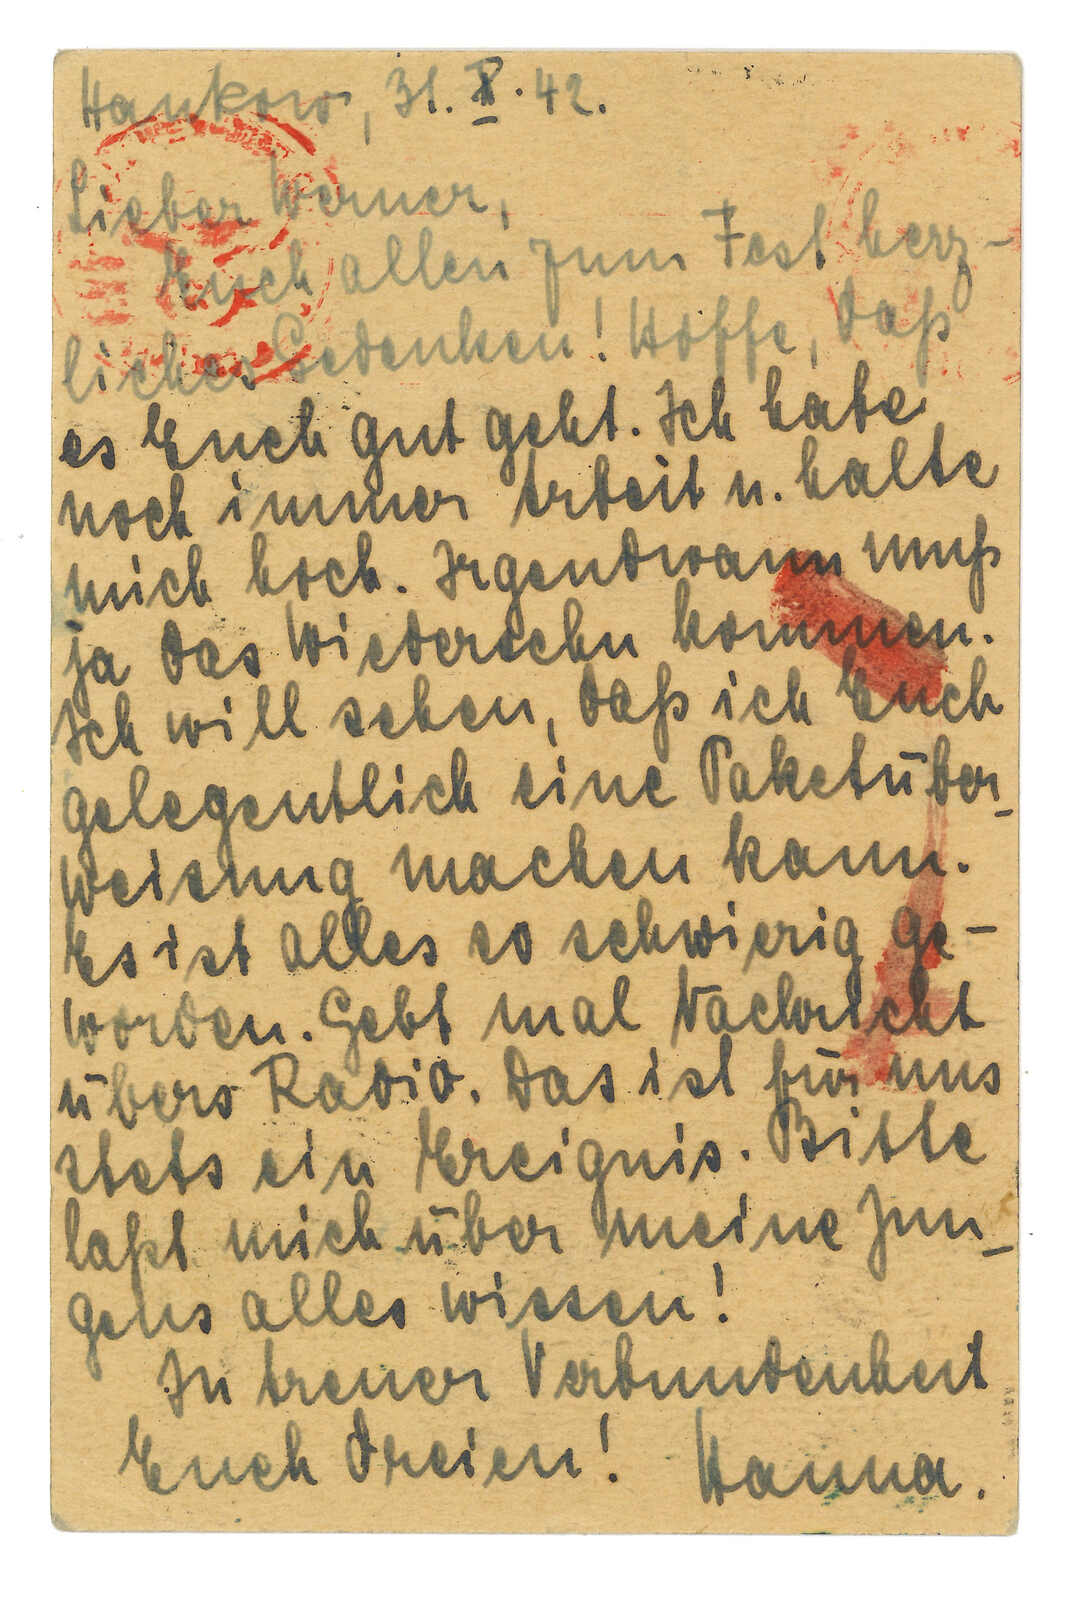 Hankow, 31. X. 42.
Lieber Werner,
Euch allen zum Fest herz-
liches Gedenken! Hoffe, daß
es Euch gut geht. Ich habe
noch immer Arbeit u. halte
mich hoch. Irgendwann muß
ja das Wiedersehn kommen.
Ich will sehen, daß ich Euch
gelegentlich eine Paketüber-
weisung machen kann.
Es ist alles so schwierig ge-
worden. Gebt mal Nachricht
übers Radio. Das ist für uns
stets ein Ereignis. Bitte
laßt mich über meine Jun-
gens alles wissen!
In treuer Verbundenheit
Euch Dreien! Hanna.